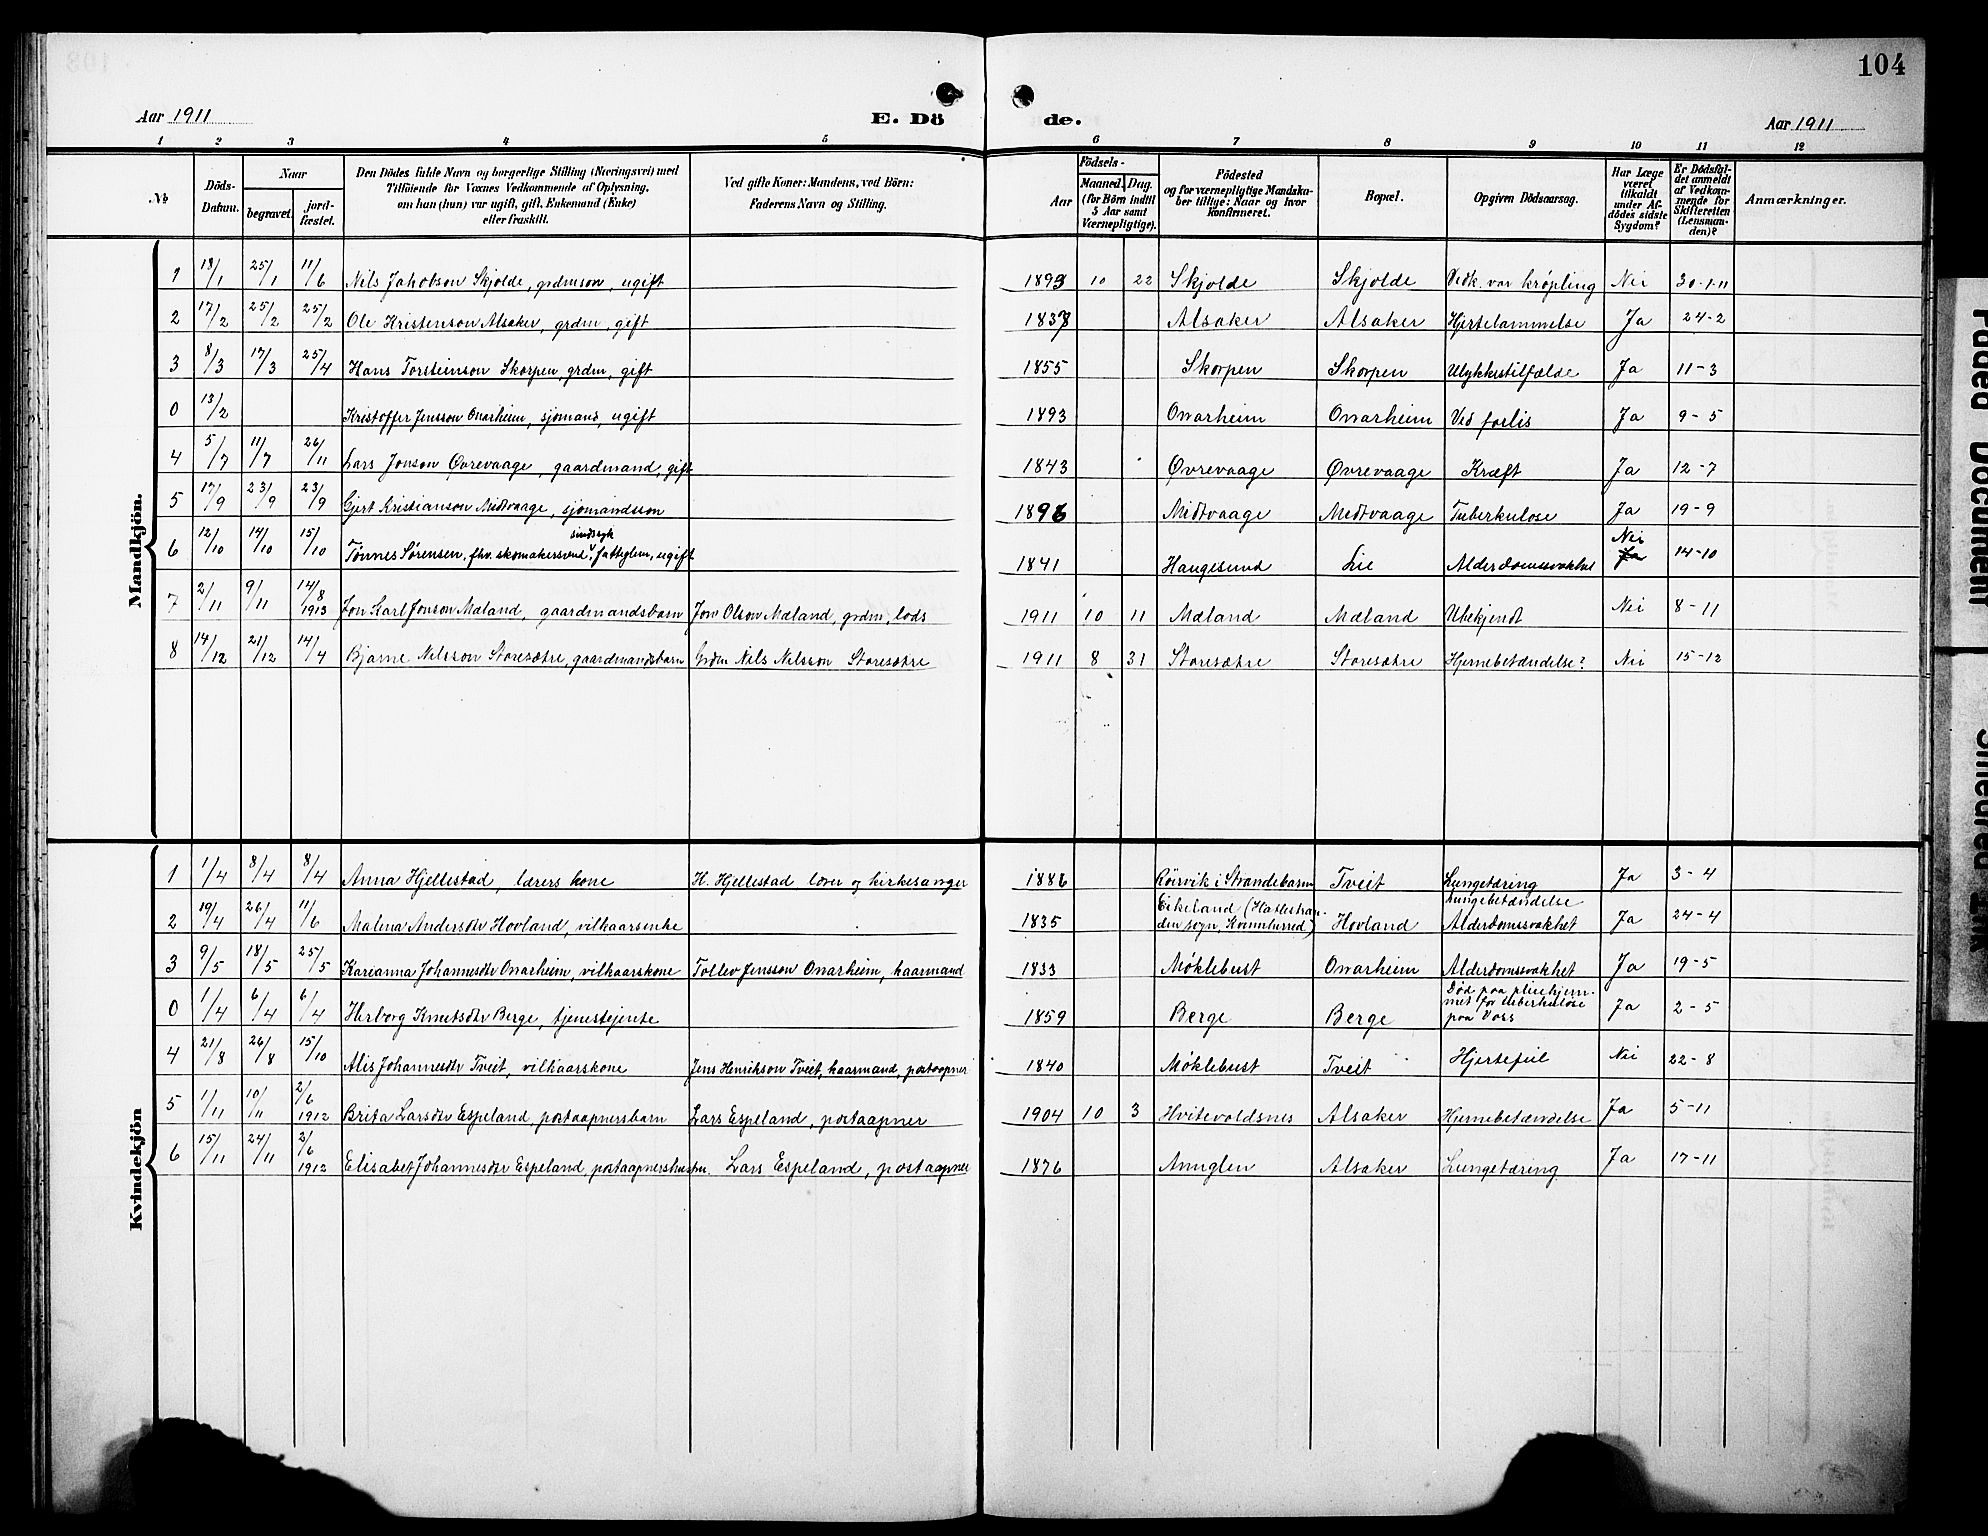 104
Aar 1911 E. Dö de. Aar 1911
1 2 3 4 5 6 7 8 9 10 11 12
No
Döds-Datum.
Naar
begravet.
jord-fæstet.
Den Dödes fulde Navn og borgerlige Stilling (Næringsvei) med
Tilföiende for Voxnes Vedkommende af Oplysning,
om han (hun) var ugift, gift, Enkemand (Enke)
eller fraskilt.
Ved gifte Koner: Mandens, ved Börn:
Faderens Navn og Stilling.
Födsels-
Aar
Maaned. Dag.
(for Börn indtil
5 Aar samt
Værnepligtige).
Födested
og for værnepligtige Mandska-
ber tillige: Naar og hvor
konfirmeret.
Bopæl.
Opgiven Dödsaarsag.
Har Læge
været
tilkaldt
under Af-
dödes sidste
Sygdom?
Er Dödsfal-
det anmeldt
af Vedkom-
mende for
Skifteretten
(Lensman-
den)?
Anmærkninger.
Mandkjön.
1 18/1 25/1 11/6 Nils Jakobson Skjolde, grdmson, ugift 1893 10 22 Skjolde Skjolde Vedk. var krøpling Nei 30-1-11
2 17/2 25/2 25/2 Ole Kristenson Alsaker, grdm, gift 1837 Alsaker Alsaker Hjertelammelse Ja 24-2
3 8/3 17/3 25/4 Hans Torsteinson Skorpen, grdm, gift 1855 Skorpen Skorpen Ulykkestilfælde Ja 11-3
0 13/2 Kristoffer Jensson Onarheim, sjømand, ugift 1893 Onarheim Onarheim Ved forlis Ja 9-5
4 5/7 11/7 26/11 Lars Jonson Øvrevaage, gaardmand, gift 1843 Øvrevaage Øvrevaage Kræft Ja 12-7
5 17/9 23/9 23/9 Gjert Kristianson Midtvaage, sjømandsson 1896 Midtvaage Midtvaage Tuberkulose Ja 19-9
6 12/10 14/10 15/10 Tønnes Sørensen, fhv. skomakersvend, sindssyk fattiglem, ugift 1841 Haugesund Lie Alderdomssvakhet Nei Ja 14-10
7 2/11 9/11 14/8 1913 Jon Karl Jonson Mæland, gaardmandsbarn Jon Olson Mæland, grdm, lods 1911 10 11 Mæland Mæland Ubekjendt Nei 8-11
8 14/12 21/12 14/4 Bjarne Nilsson Storesætre, gaardmandsbarn Grdm Nils Nilsson Storesætre 1911 8 31 Storesætre Storesætre Hjernebetændelse? Nei 15-12
Kvindekjön
1 1/4 8/4 8/4 Anna Hjellestad, lærers kone H. Hjellestad lærer og kirkesanger 1886 Røirvik i Strandebarm Tveit Lungetæring Ja 3-4
2 19/4 26/4 11/6 Malena Andersdtr Hovland, vilkaarsenke 1835 Eikeland (Hatlestran-
den sogn, Kvinnherred) Hovland Lungebetændelse
Alderdomssvakhet Ja 24-4
3 9/5 18/5 25/5 Karianna Johannesdtr Onarheim, vilkaarskone Tollev Jensson Onarheim, kaarmand 1833 Møklebust Onarheim Alderdomssvakhet Ja 19-5
0 1/4 6/4 6/4 Herborg Knutsdtr Berge, tjenestejente 1859 Berge Berge Død paa pleiehjem-
met for tuberkuløse
paa Voss Ja 2-5
4 21/8 26/8 15/10 Alis Johannesdtr Tveit, vilkaarskone Jens Henrikson Tveit, kaarmand, postaapner 1840 Møklebust Tveit Hjertefeil Nei 22-8
5 1/11 10/11 2/6 1912 Brita Larsdtr Espeland, postaapnersbarn Lars Espeland, postaapner 1904 10 3 Hvitevoldsnes Alsaker Hjernebetændelse Ja 5-11
6 15/11 24/11 2/6 1912 Elisabet Johannesdtr Espeland, postaapnershustru. Lars Espeland, postaapner 1876 Anuglen Alsaker Lungetæring Ja 17-11
Faded Document
Smeared Ink